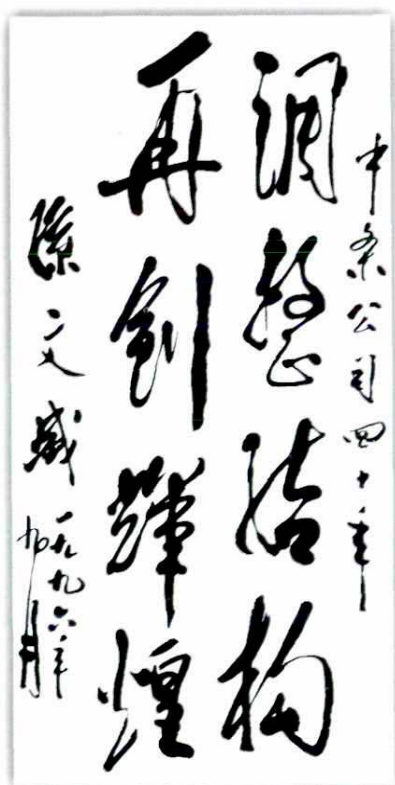 中条公司四十年
调整结构
再創輝煌
孫文盛
一九九六年
九月